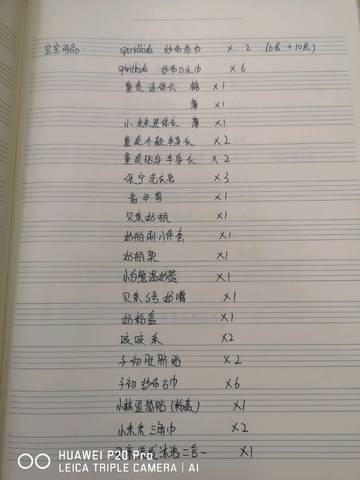 宝宝用品: spiritkids 纱布浴巾 ×2 (6层+10层)
spiritkids 纱布口水巾 ×6
童泰连体衣 棉 ×1
薄 ×1
小米米连体衣 薄 ×1
童泰 半身衣 ×2
童泰 半身衣 ×2
保宁洗衣皂 ×3
指甲剪 ×1
贝亲奶瓶 ×1
奶瓶刷八件套 ×1
奶瓶架 ×1
小白熊温奶器 ×1
贝亲S号奶嘴 ×1
奶粉盖 ×1
咬咬乐 ×2
子初肚脐贴 ×2
子初纱布方巾 ×6
小林退热贴 ×1
小米米三角巾 ×2
洗发沐浴二合一 ×1
HUAWEI P20 Pro
LEICA TRIPLE CAMERA | AI